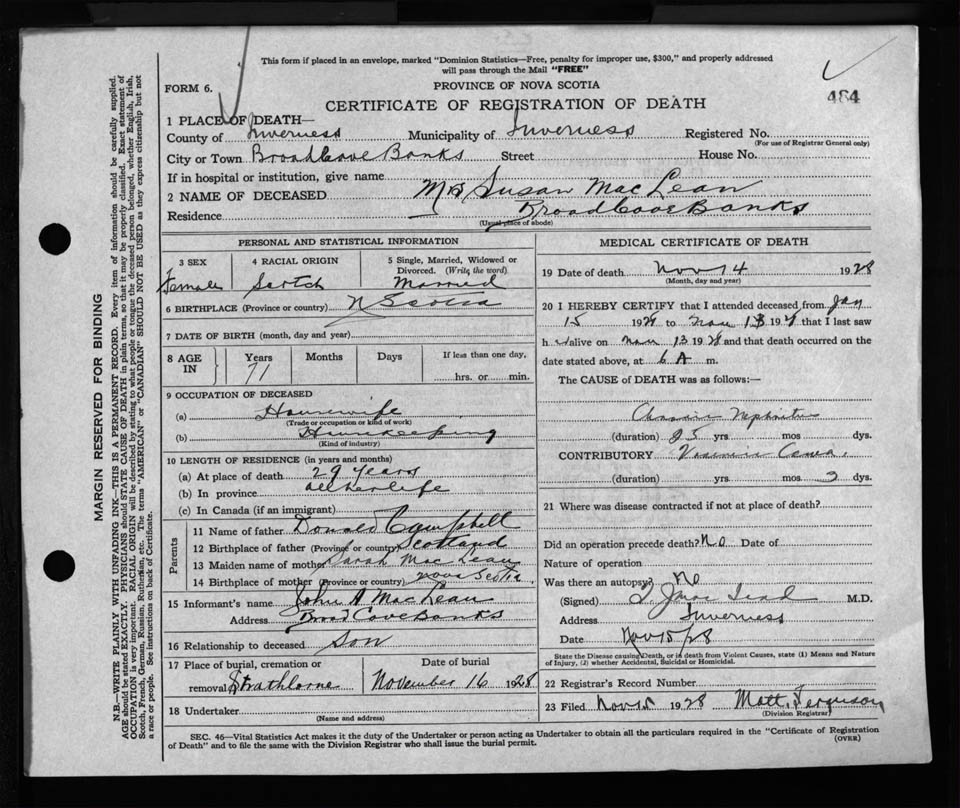 This form if placed in an envelope, marked "Dominion Statistics—Free, penalty for improper use, $300," and properly addressed
will pass through the Mail "FREE"
FORM 6.
PROVINCE OF NOVA SCOTIA
484
CERTIFICATE OF REGISTRATION OF DEATH
1 PLACE OF DEATH—
County of Inverness Municipality of Inverness Registered No.
(For use of Registrar General only)
City or Town Broad Cove Banks Street House No.
If in hospital or institution, give name
2 NAME OF DECEASED Mrs Susan MacLean
Residence Broad Cove Banks
(Usual place of abode)
PERSONAL AND STATISTICAL INFORMATION
3 SEX 4 RACIAL ORIGIN 5 Single, Married, Widowed or
Divorced. (Write the word)
Female Scotch Married
6 BIRTHPLACE (Province or country) N Scotia
7 DATE OF BIRTH (month, day and year)
8 AGE IN Years Months Days If less than one day,
71 hrs. or min.
9 OCCUPATION OF DECEASED
(a) Housewife
(Trade or occupation or kind of work)
(b) Housekeeping
(Kind of industry)
10 LENGTH OF RESIDENCE (in years and months)
(a) At place of death 29 years
(b) In province all her life
(c) In Canada (if an immigrant)
Parents
11 Name of father Donald Campbell
12 Birthplace of father (Province or country) Scotland
13 Maiden name of mother Sarah MacLean
14 Birthplace of mother (Province or country) Nova Scotia
15 Informant's name John A MacLean
Address Broad Cove Banks
16 Relationship to deceased Son
17 Place of burial, cremation or Date of burial
removal Strathlorne November 16 1928
18 Undertaker
(Name and address)
MEDICAL CERTIFICATE OF DEATH
19 Date of death Nov 14 1928
(Month, day and year)
20 I HEREBY CERTIFY that I attended deceased from Jan
15 1928 to Nov 13 1928 that I last saw
h alive on Nov 13 1928 and that death occurred on the
date stated above, at 6 A m.
The CAUSE of DEATH was as follows:—
Chronic Nephritis
(duration) yrs. mos dys.
CONTRIBUTORY
(duration) yrs. mos 3 dys.
21 Where was disease contracted if not at place of death?
Did an operation precede death? No Date of
Nature of operation
Was there an autopsy? No
(Signed) M.D.
Address Inverness
Date Nov 15/28
State the Disease causing Death, or in death from Violent Causes, state (1) Means and Nature
of Injury, (2) whether Accidental, Suicidal or Homicidal.
22 Registrar's Record Number
23 Filed Nov 15 1928 Matt. Ferguson
(Division Registrar)
SEC. 46—Vital Statistics Act makes it the duty of the Undertaker or person acting as Undertaker to obtain all the particulars required in the "Certificate of Registration
of Death" and to file the same with the Division Registrar who shall issue the burial permit.
(OVER)
MARGIN RESERVED FOR BINDING
N.B.—WRITE PLAINLY WITH UNFADING INK—THIS IS A PERMANENT RECORD. Every item of information should be carefully supplied.
AGE should be stated EXACTLY. PHYSICIANS should STATE CAUSE OF DEATH in plain terms, so that it may be properly classified. Exact statement of
OCCUPATION is very important. RACIAL ORIGIN will be described by stating to what people or tongue the deceased person belonged, whether English, Irish,
Scotch, French, German, Russian, Ruthenian, etc. The terms "AMERICAN" or "CANADIAN" SHOULD NOT BE USED as they express citizenship but not
a race or people. See instructions on back of Certificate.